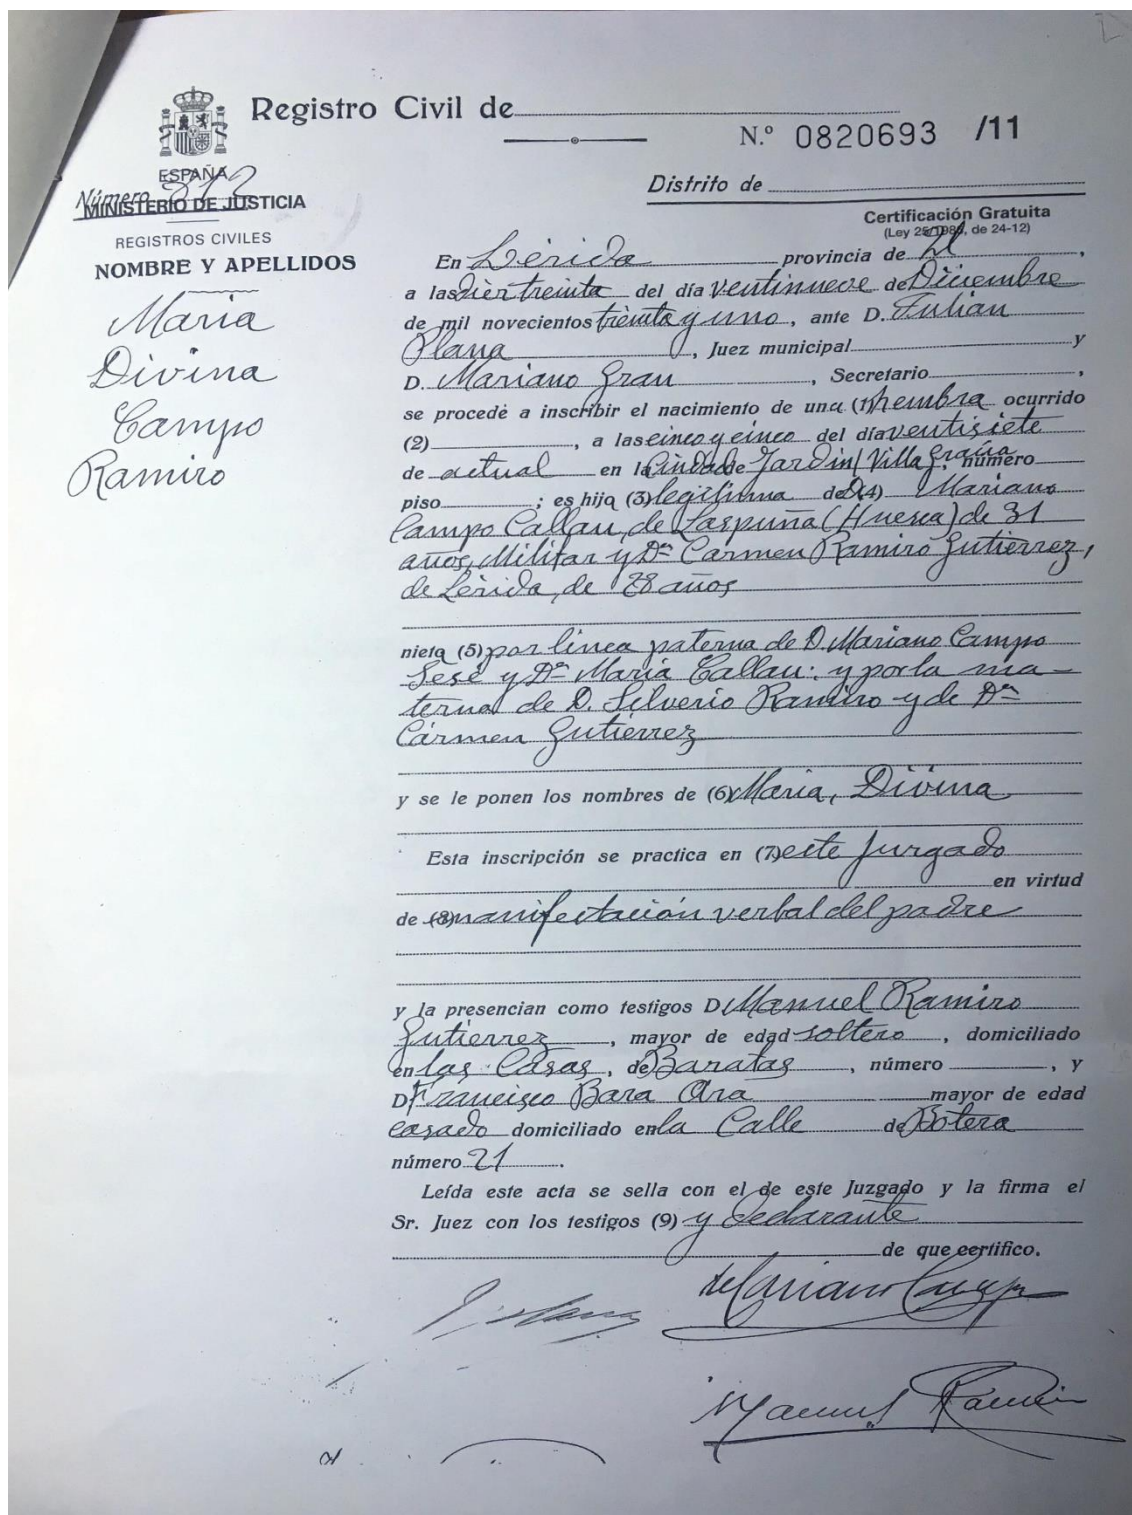 Registro Civil de
N.º 0820693 /11
ESPAÑA
Número 812
MINISTERIO DE JUSTICIA
Distrito de
REGISTROS CIVILES
Certificación Gratuita
(Ley 25/1986, de 24-12)
NOMBRE Y APELLIDOS
María
Divina
Campo
Ramiro
En Lérida provincia de id,
a las diez treinta del día ventinueve de Diciembre
de mil novecientos treinta y uno, ante D. Julian
Plana, Juez municipal y
D. Mariano Grau, Secretario,
se procede a inscribir el nacimiento de una (1) hembra ocurrido
(2), a las cinco y cinco del día ventisiete
de actual en la Ciudad Jardin/ Villa Gracia número
piso ; es hija (3) legítima de D. (4) Mariano
Campo Callau, de Laspuña (Huesca) de 31
años, Militar y Dª Carmen Ramiro Gutiérrez,
de Lérida, de 28 años
nieta (5) por línea paterna de D. Mariano Campo
Sesé y Dª María Callau: y por la ma-
terna de D. Silverio Ramiro y de Dª
Cármen Gutiérrez
y se le ponen los nombres de (6) María, Divina
Esta inscripción se practica en (7) este Juzgado
en virtud
de (8) manifestación verbal del padre
y la presencian como testigos D. Manuel Ramiro
Gutiérrez, mayor de edad soltero, domiciliado
en las Casas, de Baratas, número , y
D. Francisco Bara Ora mayor de edad
casado domiciliado en la Calle de Botera
número 21.
Leída este acta se sella con el de este Juzgado y la firma el
Sr. Juez con los testigos (9) y declarante
de que certifico.
Mariano Campo
Manuel Ramiro